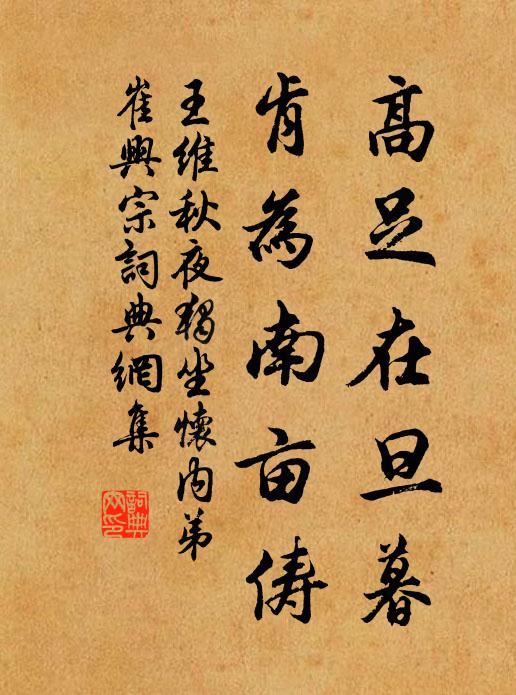 高足在旦暮
肯為南畝儔
王維秋夜獨坐懷內弟
崔興宗詞典網集
詞典
网印